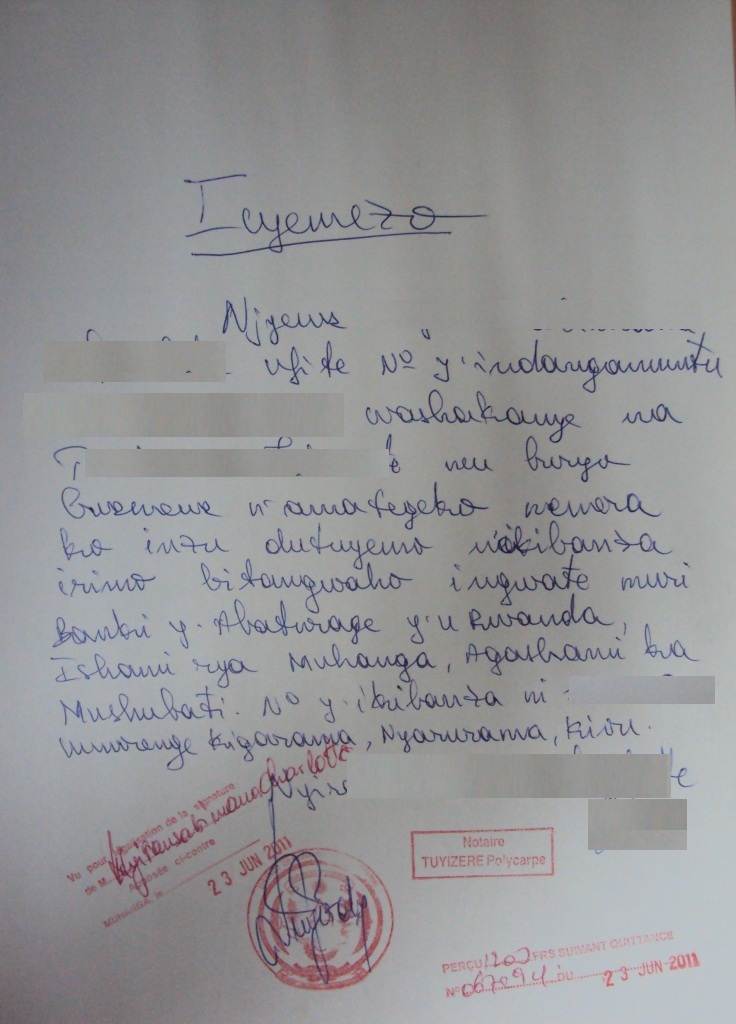 Icyemezo
Njyewe
ufite Nº y'indangamuntu
washakanye na
mu buryo
bwemewe n'amategeko nemera
ko inzu dutuyemo n'ikibanza
irimo bitangwaho ingwate muri
Banki y'Abaturage y'u Rwanda,
Ishami rya Muhanga, Agashami ka
Mushubati. Nº y'ikibanza ni
umurenge Kigarama, Nyarurama, Kivu.
Vu pour légalisation de la signature
de M.
Apposée ci-contre
MUHANGA, le 23 JUN 2011
Notaire
TUYIZERE Polycarpe
PERÇU 1200 FRS SUIVANT QUITTANCE
Nº 067294 DU 23 JUN 2011